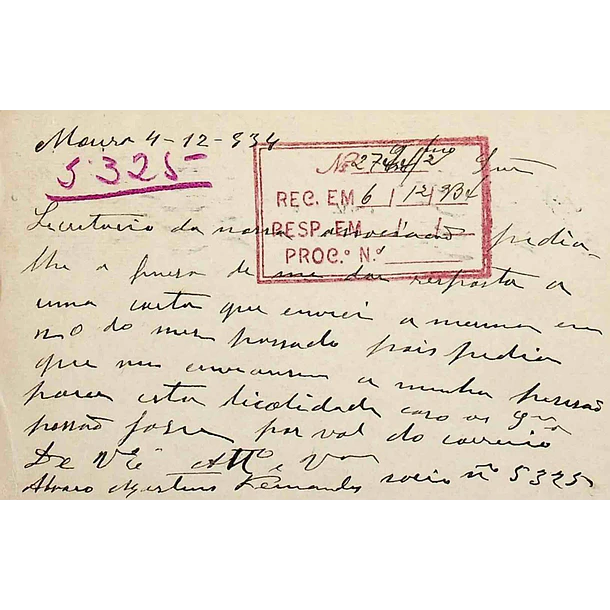 Moura 4-12-934
5325
Nº 2764/2 Snr
REC. EM 6 / 12 / 934
RESP. EM " / /
PROC.º N.º
Secretario da nossa pedia-
lhe a fineza de me dar resposta a
uma carta que enviei a mesma em
do mez passado pois pedia
que me enviassem a minha pensão
para esta localidade caso os Snrs
possão fazer por val do correio
De V. Eª Attº e Vor
Alvaro Martins Fernandes socio nº 5325